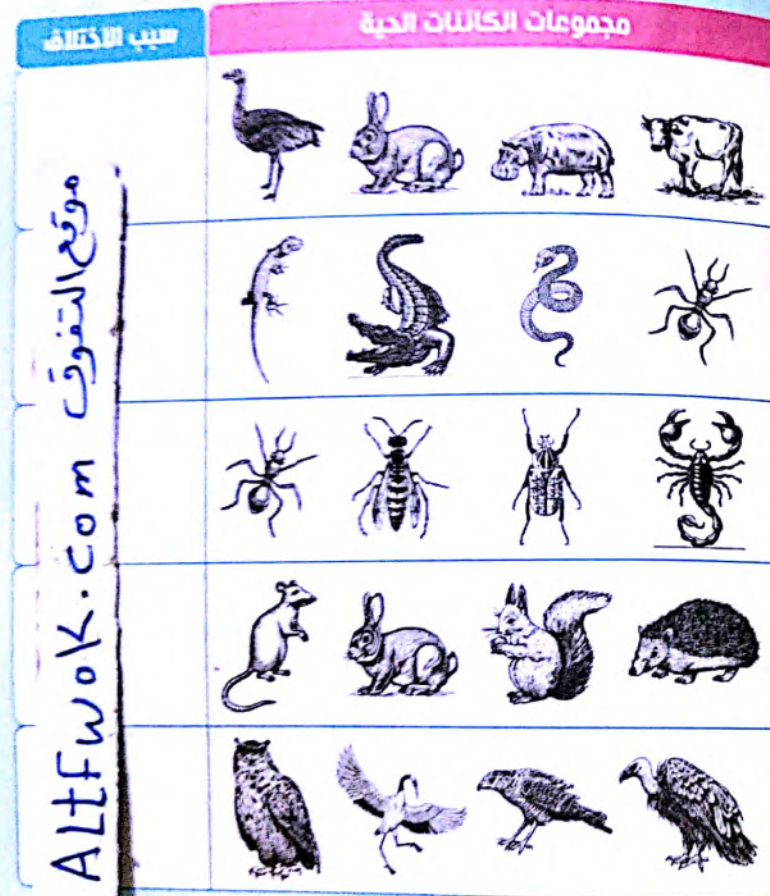 مجموعات الكائنات الحية
سبب الاختلاف
موقع التفوق
ALtFwoK.com